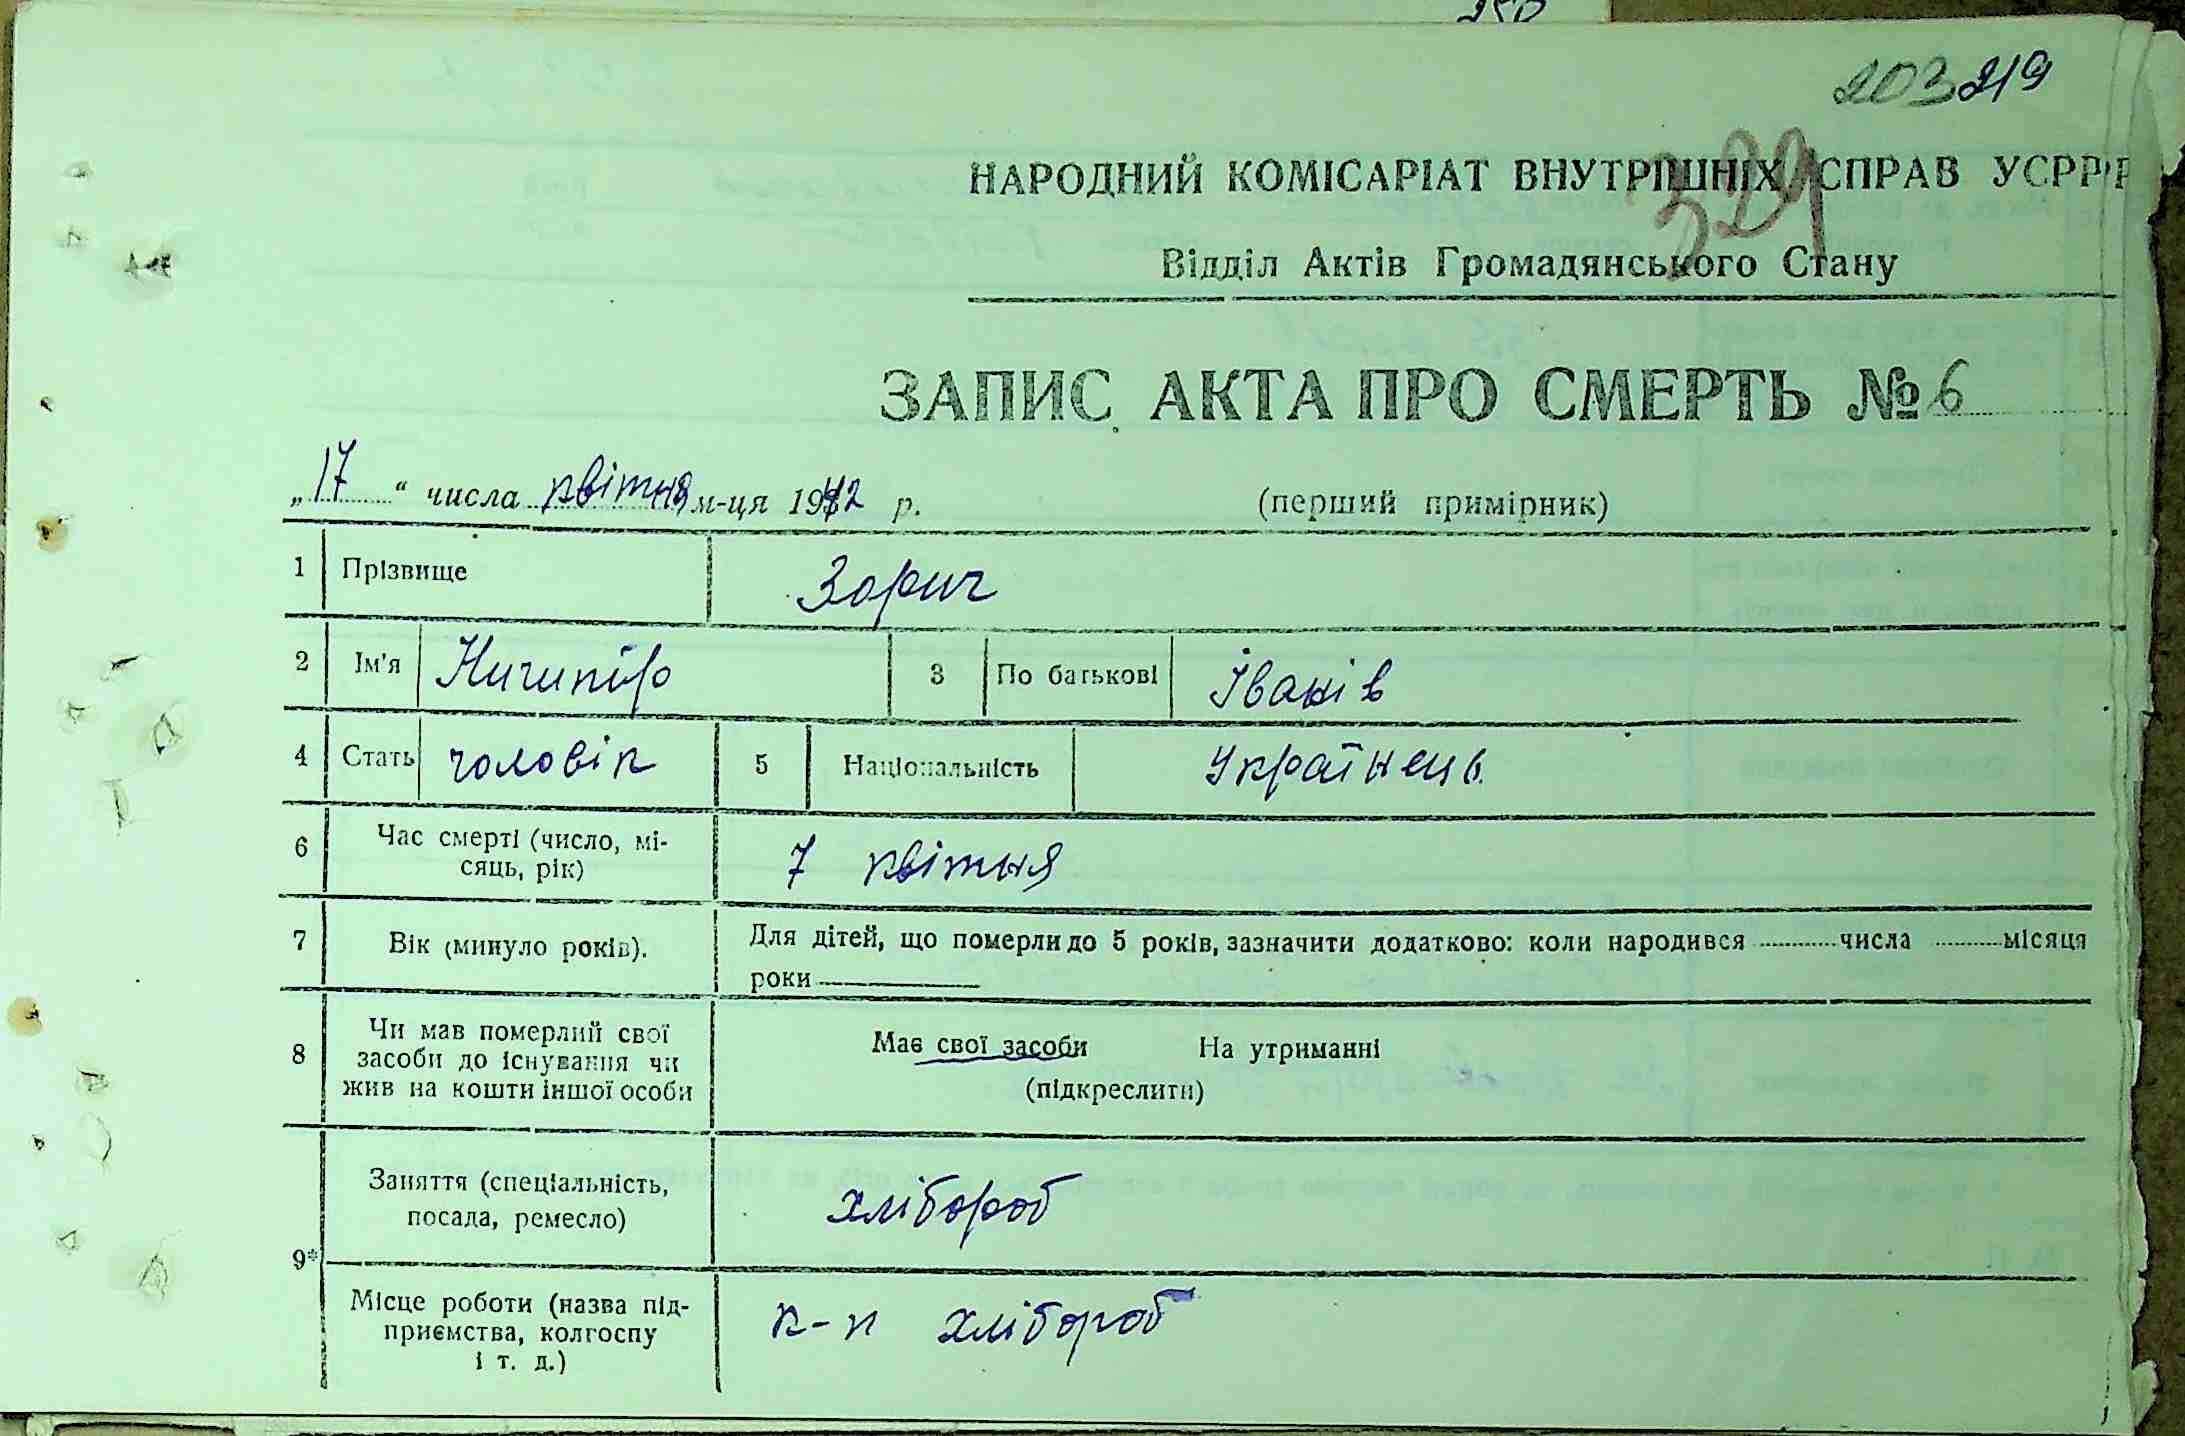 250
203 219
329
НАРОДНИЙ КОМІСАРІАТ ВНУТРІШНІХ СПРАВ УСРР
Відділ Актів Громадянського Стану
ЗАПИС АКТА ПРО СМЕРТЬ № 6
„17“ числа квітня м-ця 1942 р. (перший примірник)
1 Прізвище Зорич
2 Ім'я Ничипір 3 По батькові Іванів
4 Стать чоловік 5 Національність Українець
6 Час смерті (число, мі-
сяць, рік) 7 квітня
7 Вік (минуло років). Для дітей, що померли до 5 років, зазначити додатково: коли народився числа місяця
роки
8 Чи мав померлий свої
засоби до існування чи
жив на кошти іншої особи
Має свої засоби На утриманні
(підкреслити)
9* Заняття (спеціальність,
посада, ремесло) хлібороб
Місце роботи (назва під-
приємства, колгоспу
і т. д.) к-п хлібороб